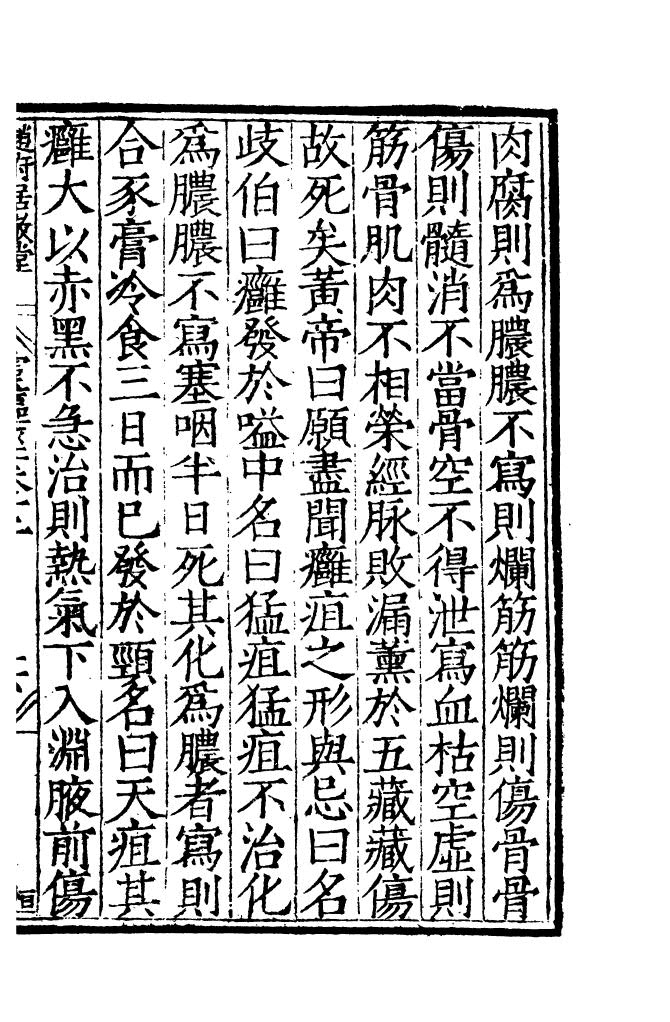 肉腐則爲膿膿不寫則爛筋筋爛則傷骨骨
傷則髓消不當骨空不得泄寫血枯空虛則
筋骨肌肉不相榮經脉敗漏薰於五藏藏傷
故死矣黃帝曰願盡聞癰疽之形與忌曰名
歧伯曰癰發於嗌中名曰猛疽猛疽不治化
爲膿膿不寫塞咽半日死其化爲膿者寫則
合豕膏冷食三日而已發於頸名曰夭疽其
癰大以赤黑不急治則熱氣下入淵腋前傷
趙府居敬堂